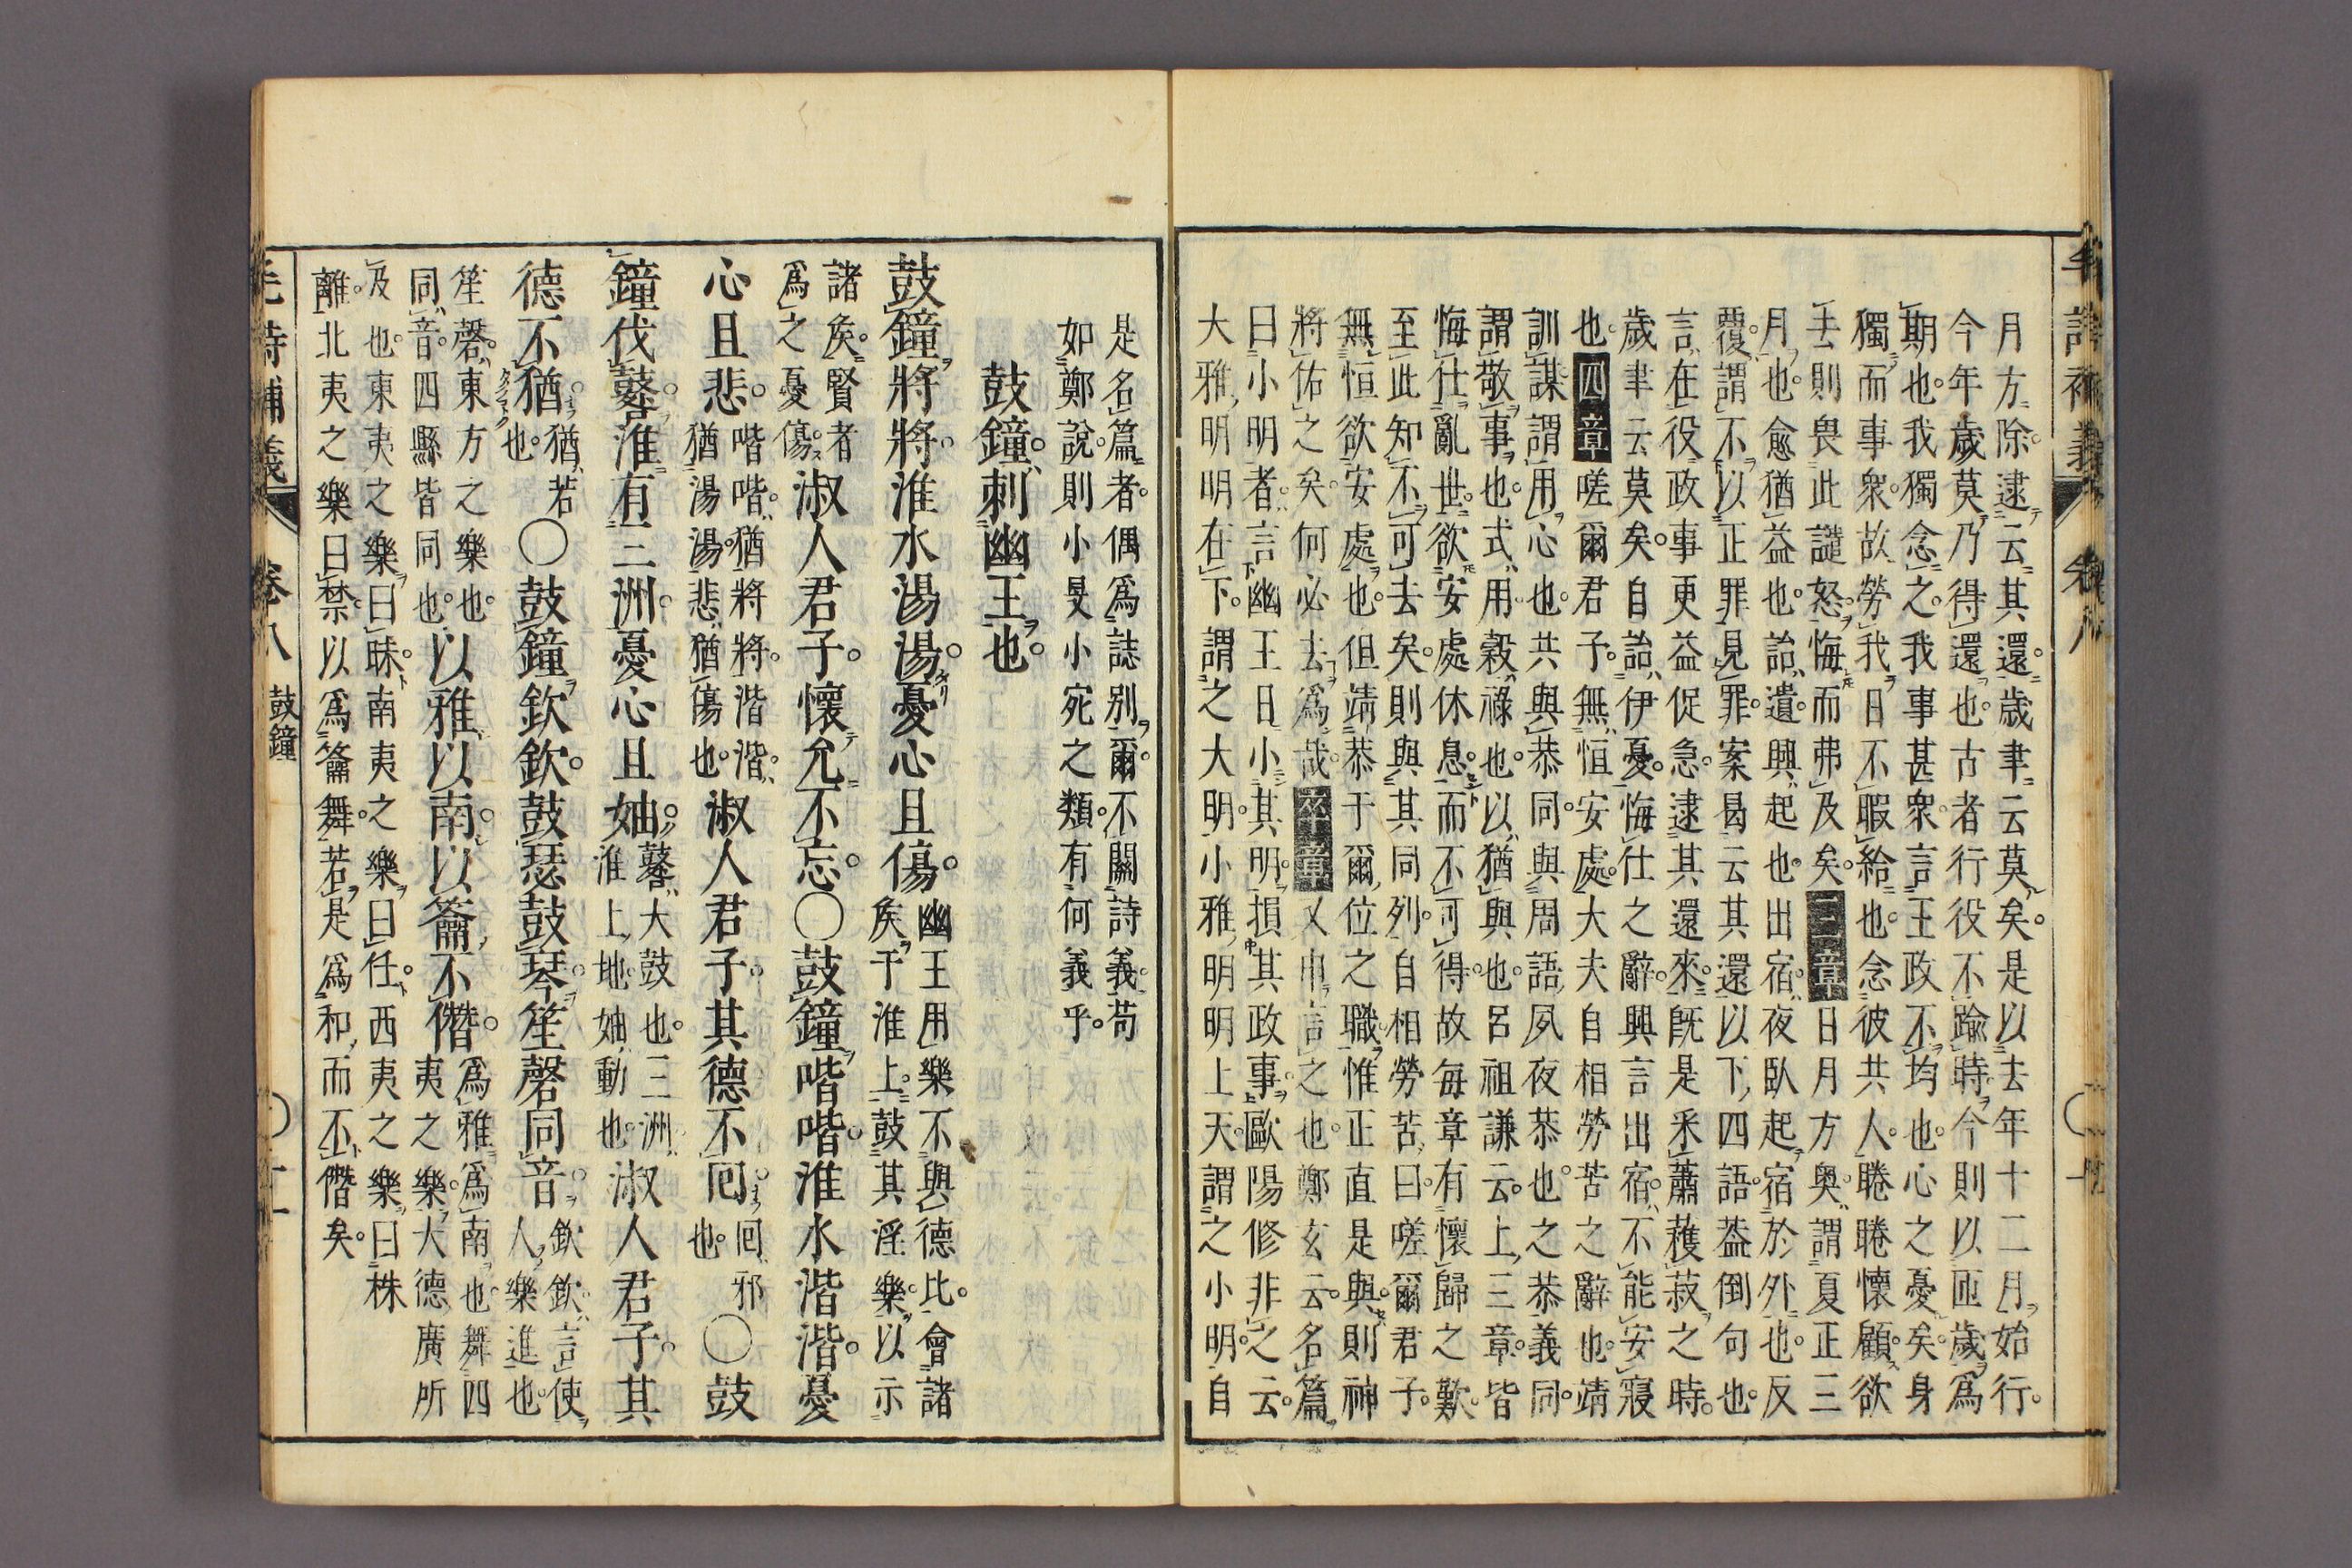 毛詩補義 卷八
月方除逮云其還歲聿云莫矣是以去年十二月始行
今年歲莫乃得還也古者行役不踰時今則以匝歲爲
期也我獨念之我事甚衆言王政不均也心之憂矣身
獨而事衆故勞我日不暇給也念彼共人睠睠懷顧欲
去則畏此譴怒悔而弗及矣三章日月方奧謂夏正三
月也愈猶益也詒遺興起也出宿夜臥起宿於外也反
覆謂不以正罪見罪案曷云其還以下四語葢倒句也
言在役政事更益促急逮其還來旣是釆蕭穫菽之時
歲聿云莫矣自詒伊憂悔仕之辭興言出宿不能安寢
也四章嗟爾君子無恒安處大夫自相勞苦之辭也靖
訓謀謂用心也共與恭同與周語夙夜恭也之恭義同
謂敬事也式用穀祿也以猶與也呂祖謙云上三章皆
悔仕亂世欲安處休息而不可得故每章有懷歸之歎
至此知不可去矣則與其同列自相勞苦曰嗟爾君子
無恒欲安處也但靖恭于爾位之職惟正直是與則神
將佑之矣何必去爲哉卒章又申言之也鄭玄云名篇
曰小明者言幽王日小其明損其政事歐陽修非之云
大雅明明在下謂之大明小雅明明上天謂之小明自
是名篇者偶爲誌别爾不關詩義苟
如鄭說則小旻小宛之類有何義乎
鼓鐘刺幽王也
鼓鐘將將淮水湯湯憂心且傷幽王用樂不與德比會諸
矦于淮上鼓其淫樂以示
諸矦賢者
爲之憂傷淑人君子懷允不忘〇鼓鐘喈喈淮水湝湝憂
心且悲喈喈猶將將湝湝
猶湯湯悲猶傷也淑人君子其德不回回邪
也〇鼓
鐘伐鼛淮有三洲憂心且妯鼛大鼓也三洲
淮上地妯動也淑人君子其
德不猶猶若
也〇鼓鐘欽欽鼓瑟鼓琴笙磬同音欽欽言使
人樂進也
笙磬東方之樂也
同音四縣皆同也以雅以南以籥不僭爲雅爲南也舞四
夷之樂大德廣所
及也東夷之樂曰昧南夷之樂曰任西夷之樂曰株
離北夷之樂曰禁以爲籥舞若是爲和而不僭矣
毛詩補義 卷八 鼓鐘 〇十一